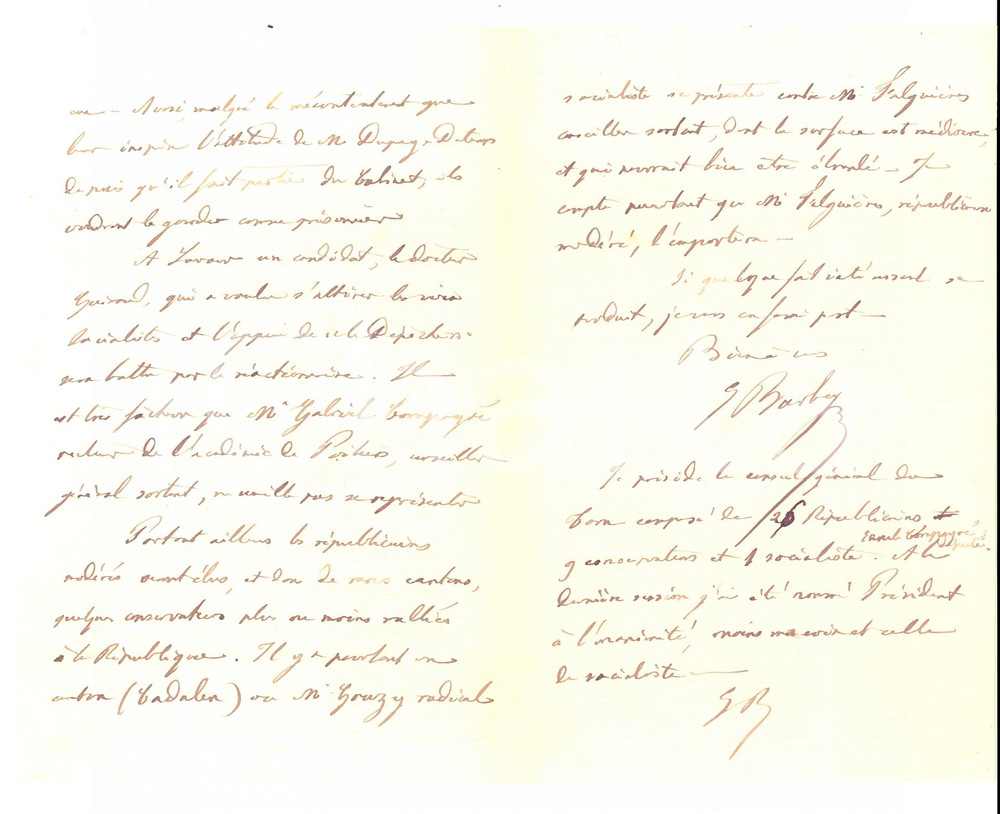 eux — Aussi, malgré le mécontentement que
leur inspire l'attitude de M Dupuy-Dutemps
depuis qu'il fait partie du Cabinet, ils
voudront le garder comme prisonnier
A Lavaur un candidat, le docteur
Guiraud, qui a voulu s'attirer les voix
socialistes et l'appui de la Dépêche
sera battu par le réactionnaire. Il
est très fâcheux que Mr Gabriel Compayré
recteur de l'académie de Poitiers, conseiller
général sortant, ne veuille pas se représenter
Partout ailleurs les républicains
modérés seront élus, et dans de rares cantons,
quelques conservateurs plus ou moins ralliés
à la République. Il y a pourtant un
canton (Cadalen) où Mr Gouzy radical
socialiste se présente contre Mr Falguières
conseiller sortant, dont la surface est médiocre,
et qui pourrait bien être ébranlé — Je
compte pourtant que Mr Falguières, républicain
modéré, l'emportera —
Si quelque fait intéressant se
produit, je vous en ferai part —
Bien à vous
G Barbey
Je préside le conseil général du
Tarn composé de 26 Républicains,
9 conservateurs et 1 socialiste. A la
Émile Compayré, député
dernière session j'ai été nommé Président
à l'unanimité, moins ma voix et celle
du socialiste —
G B